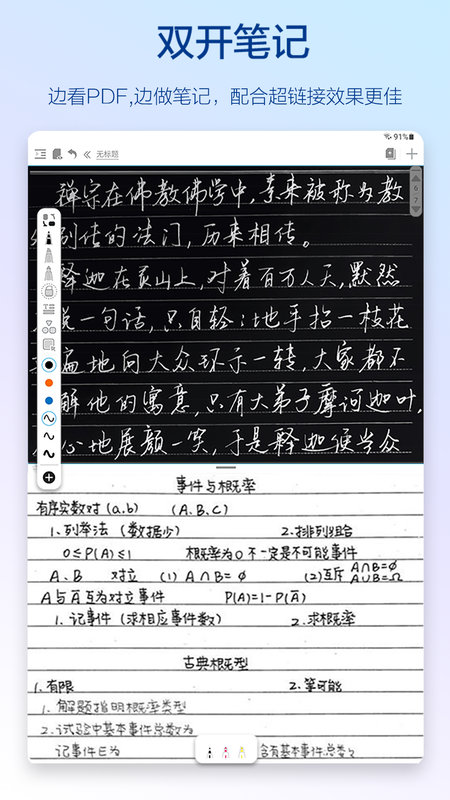 双开笔记
边看PDF,边做笔记，配合超链接效果更佳
91%
无标题
6
7
禅宗在佛教佛学中,素来被称为教
别传的法门,历来相传。
释迦在灵山上,对着百万人天,默然
说一句话,只自轻轻地手拈一枝花
遍地向大众环示一转,大家都不
解他的寓意,只有大弟子摩诃迦叶,
心地展颜一笑,于是释迦便当众
事件与概率
有序实数对 (a.b) (A.B.C)
1.列举法 (数据少) 2.排列组合
0≤P(A)≤1 概率为0不一定是不可能事件
A、B 对立 (1) A∩B=∅ (2)互斥 A∩B=∅ A∪B=Ω
A与A̅互为对立事件 P(A)=1-P(A̅)
1. 记事件 (求相应事件数) 2.求概率
古典概型
1.有限 2.等可能
1. 解题指明概率类型
2.试验中基本事件总数为
记事件E为 含有基本事件总数